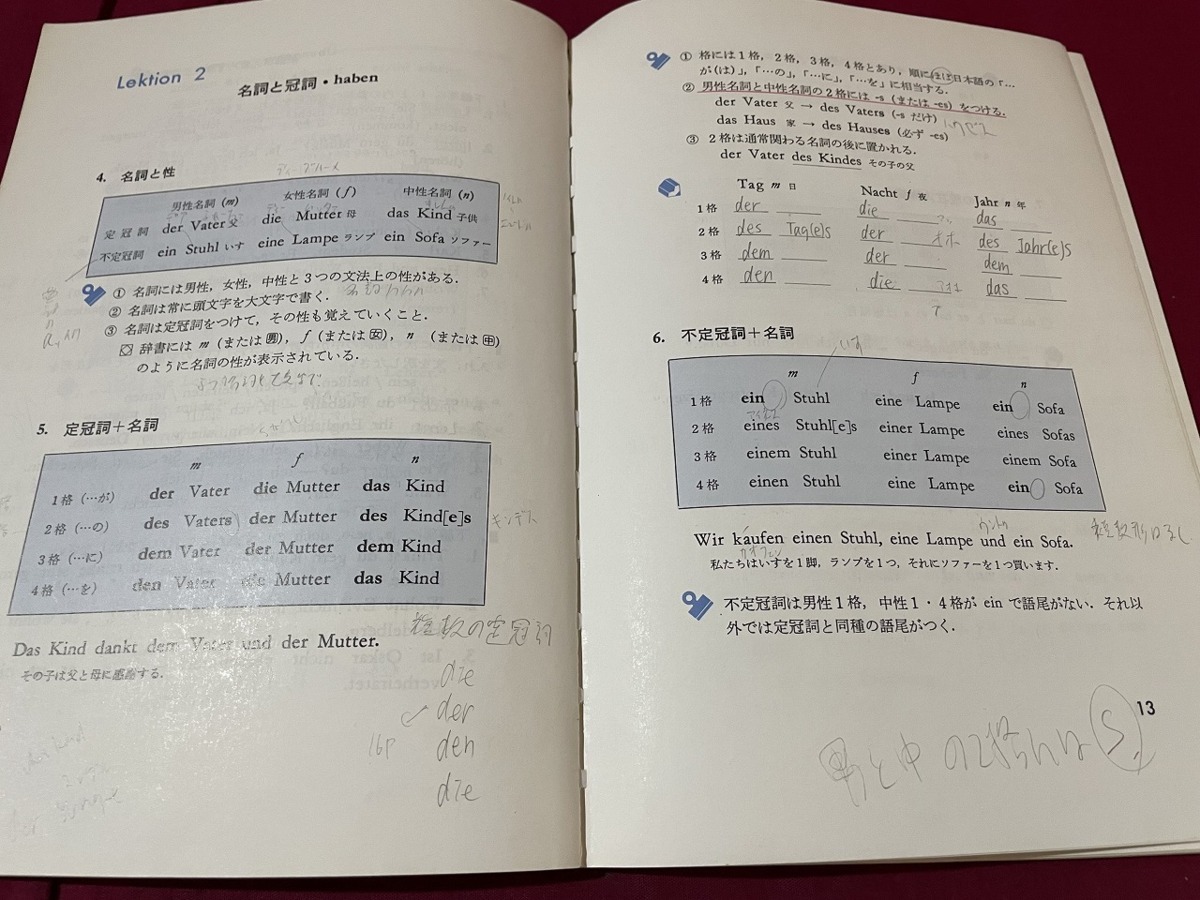 Lektion 2
名詞と冠詞・haben
4. 名詞と性
男性名詞 (m) 女性名詞 (f) 中性名詞 (n)
定冠詞 der Vater 父 die Mutter 母 das Kind 子供
不定冠詞 ein Stuhl いす eine Lampe ランプ ein Sofa ソファー
① 名詞には男性，女性，中性と3つの文法上の性がある．
② 名詞は常に頭文字を大文字で書く．
③ 名詞は定冠詞をつけて，その性も覚えていくこと．
辞書には m (または男), f (または女), n (または中)
のように名詞の性が表示されている．
5. 定冠詞＋名詞
m f n
1格 (…が) der Vater die Mutter das Kind
2格 (…の) des Vaters der Mutter des Kind[e]s
キンデス
3格 (…に) dem Vater der Mutter dem Kind
4格 (…を) den Vater die Mutter das Kind
Das Kind dankt dem Vater und der Mutter.
その子は父と母に感謝する．
複数の定冠詞
die
der
16P den
die
① 格には1格，2格，3格，4格とあり，順にほぼ日本語の「…
が(は)」，「…の」，「…に」，「…を」に相当する．
② 男性名詞と中性名詞の2格には -s (または -es) をつける．
der Vater 父 → des Vaters (-s だけ)
das Haus 家 → des Hauses (必ず -es)
③ 2格は通常関わる名詞の後に置かれる．
der Vater des Kindes その子の父
Tag m 日 Nacht f 夜 Jahr n 年
1格 der die das
2格 des Tag(e)s der des Jahr(e)s
3格 dem der dem
4格 den die das
6. 不定冠詞＋名詞
いす
m f n
1格 ein Stuhl eine Lampe ein Sofa
2格 eines Stuhl[e]s einer Lampe eines Sofas
3格 einem Stuhl einer Lampe einem Sofa
4格 einen Stuhl eine Lampe ein Sofa
Wir kaufen einen Stuhl, eine Lampe und ein Sofa.
カオフェン
私たちはいすを1脚，ランプを1つ，それにソファーを1つ買います．
不定冠詞は男性1格，中性1・4格が ein で語尾がない．それ以
外では定冠詞と同種の語尾がつく．
13